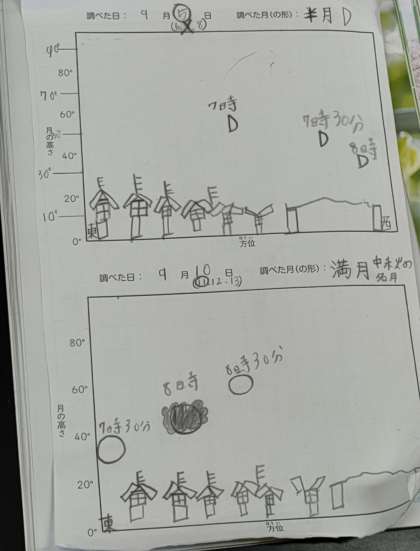 調べた日： 9 月 5 日 調べた月(の形)： 半月 D
(6 8)
90°
80°
70°
60°
月の高さ
40°
30°
20°
10°
0°
7時
7時30分
8時
東
方位
西
調べた日： 9 月 10 日 調べた月(の形)： 満月 中秋の名月
(11.12.13)
80°
60°
月の高さ
40°
20°
0°
7時30分
8時
8時30分
東
ほうい
方位